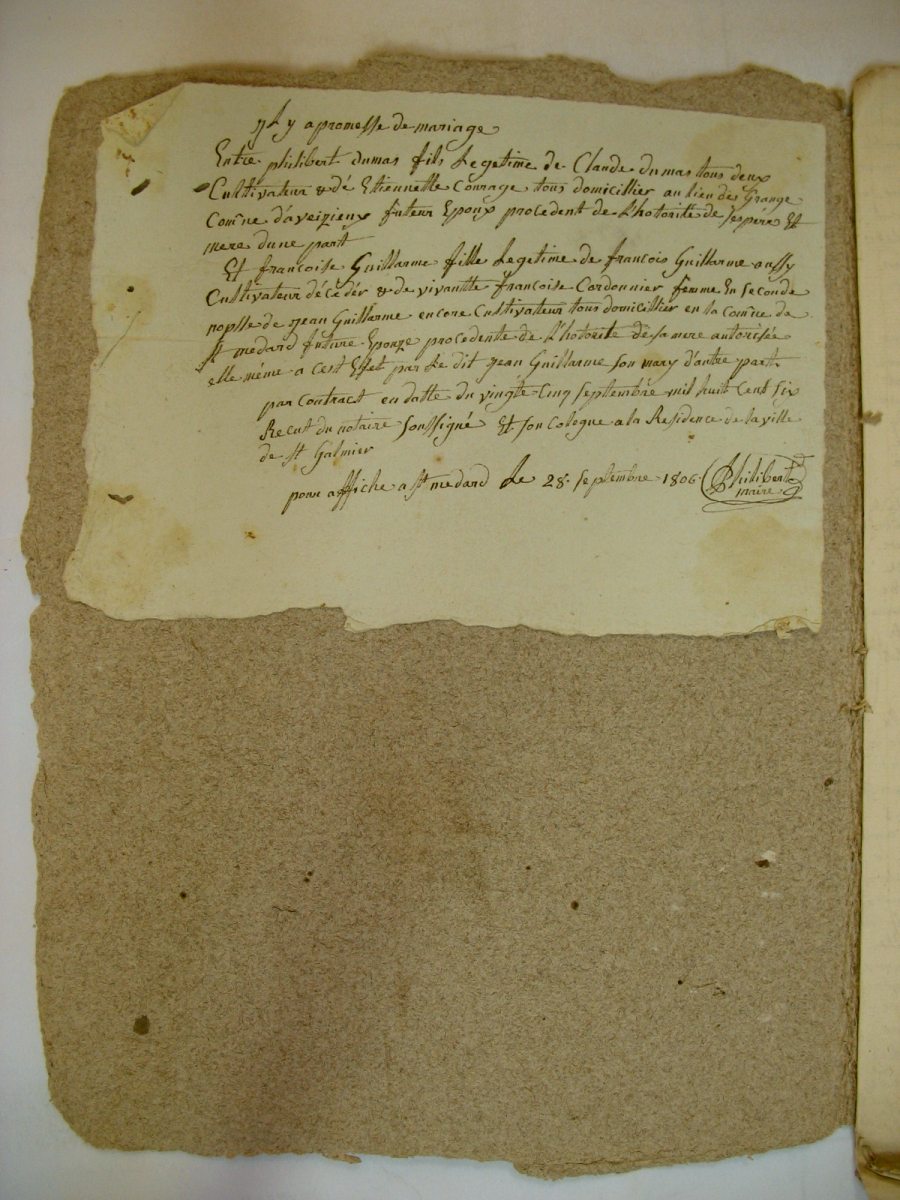 jl y a promesse de mariage
Entre philibert dumas fils Legetime de Claude dumas tous deux
Cultivateur & dé Etiennette Courage tous domicillier au lieu des Grange
Com̃ne d'aveizieux futeur Epoux procedent de L'hotorité de ses péré Et
mere dune part
Et francoise Guillarme fille Legetime de francois Guillarme aussy
Cultivateur décédér & de vivantte francoise Cordonnier femme En Seconde
nopsse de jean Guillarme encore Cultivateur tous domicillier en la Com̃ne de
St medard future Epouze procedente de L'hotorité de sa mere autorisée
elle même a cest Effet par Le dit jean Guillarme son mary d'autre part
par Contract en datte du vingte Cinq septembre mil huit Cent six
Recut du notaire soussigné Et son Cologue a la Residence de la ville
de St Galmier
pour affiche a St medard Le 28 septembre 1806 Philibert
maire